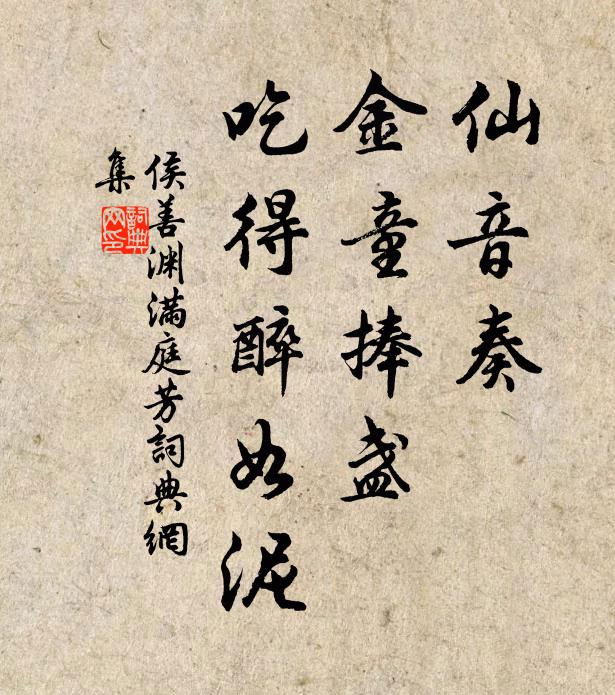 仙音奏
金童捧盏
吃得醉如泥
侯善渊满庭芳词典網
集
詞典网印